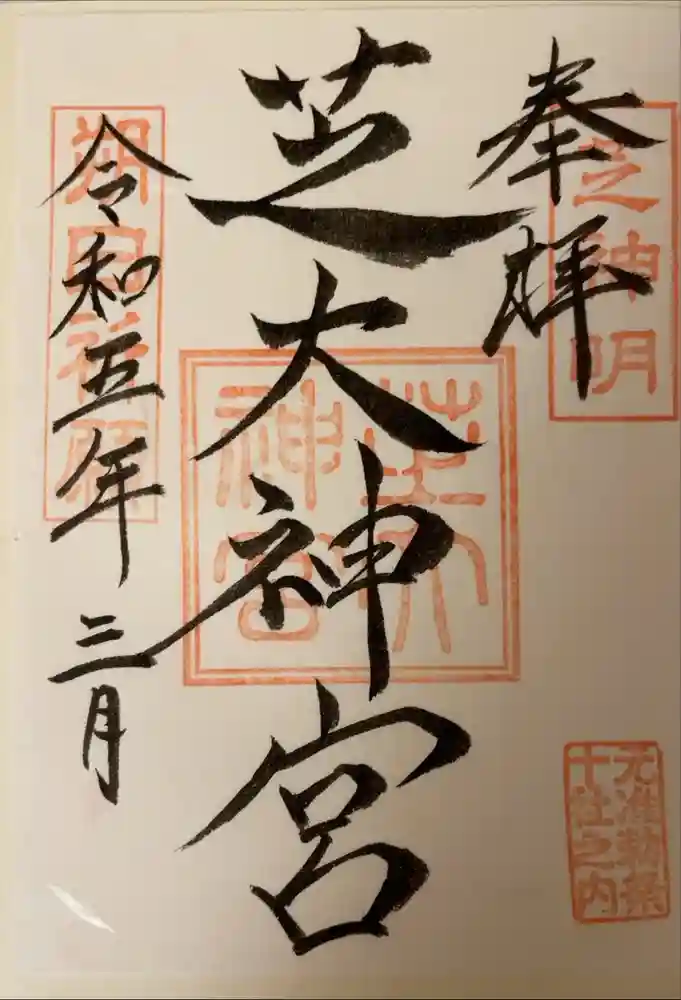 奉拝
芝神明
元准勅祭
十社之内
芝大神宮
芝大
神宮
令和五年三月
朔日祈願